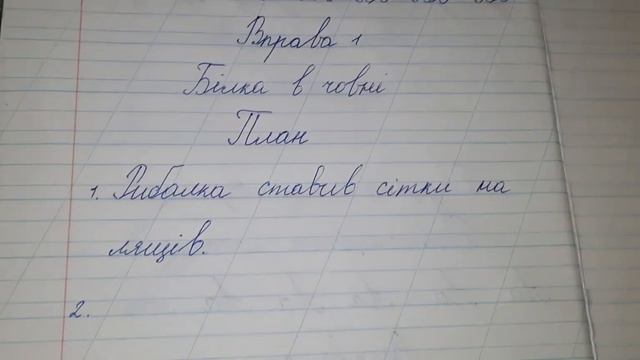 Вправа 1
Білка в човні
План
1. Рибалка ставив сітки на
лящів.
2.